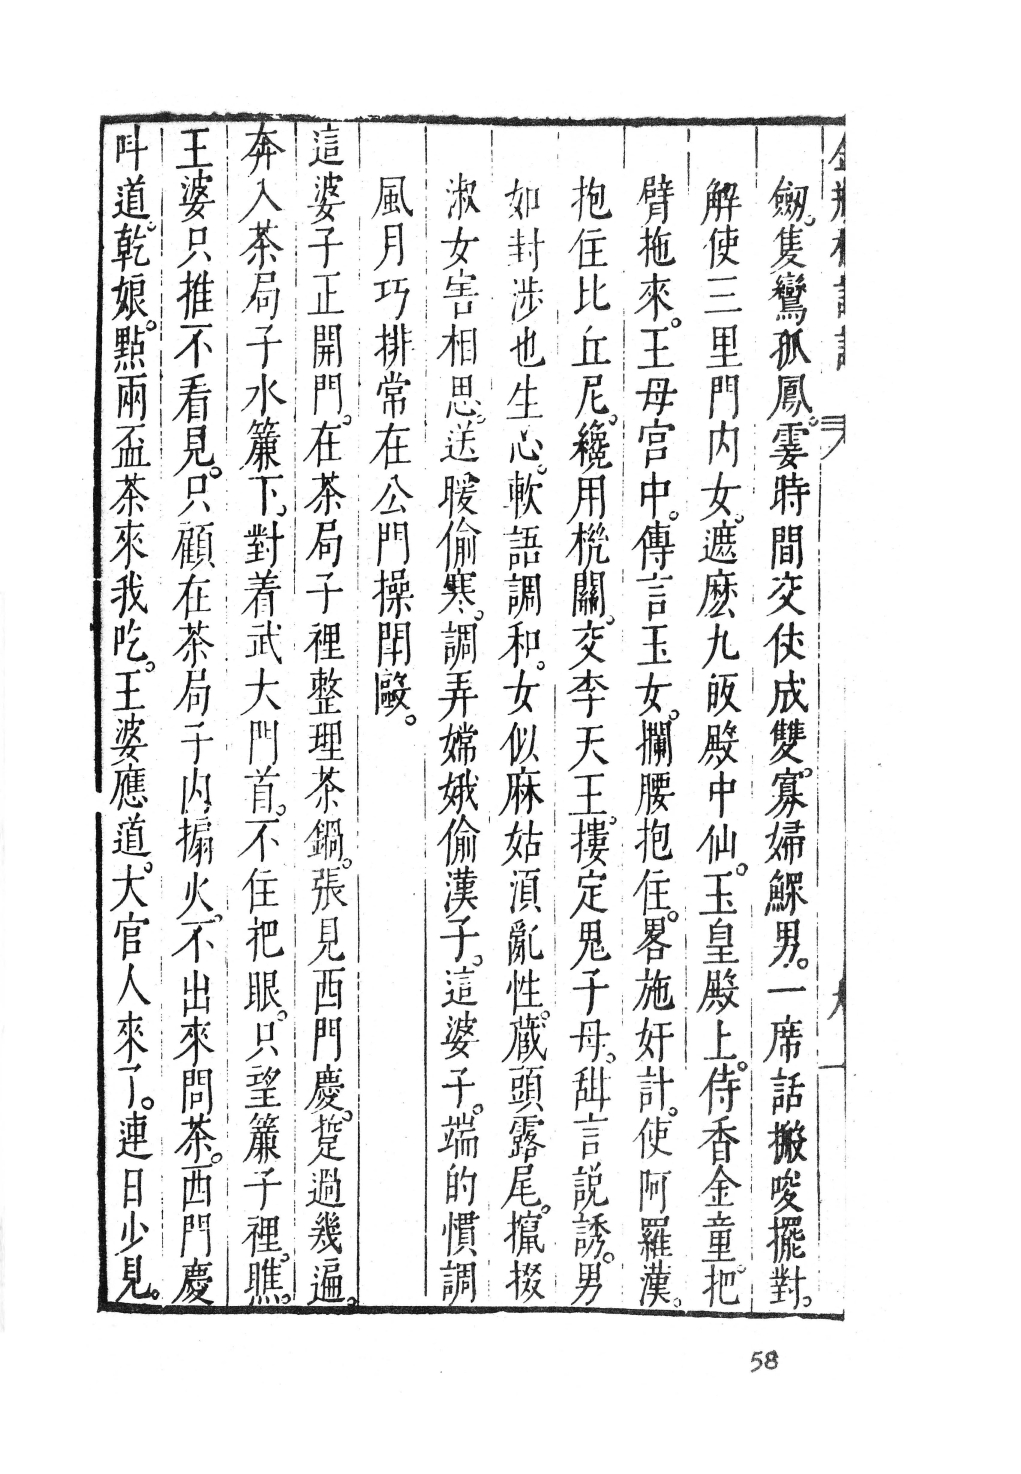 金瓶梅詞話 卷一
劔。隻鸞孤鳳。霎時間交仗成雙。寡婦鰥男。一席話搬唆擺對。
解使三里門内女。遮麽九皈殿中仙。玉皇殿上。侍香金童。把
臂拖來。王母宫中。傳言玉女。攔腰抱住。畧施奸計。使阿羅漢。
抱住比丘尼。纔用機關。交李天王。摟定鬼子母。甜言説誘。男
如封涉也生心。軟語調和。女似麻姑湏亂性。藏頭露尾。攛掇
淑女害相思。送暖偷寒。調弄嫦娥偷漢子。這婆子。端的慣調
風月巧排常在公門操鬥毆。
這婆子正開門。在茶局子裡整理茶鍋。張見西門慶。踅過幾遍。
奔入茶局子水簾下。對着武大門首。不住把眼。只望簾子裡。瞧。
王婆只推不看見。只顧在茶局子内搧火。不出來問茶。西門慶
呌道。乾娘。點兩盃茶來我吃。王婆應道。大官人來了。連日少見。
58